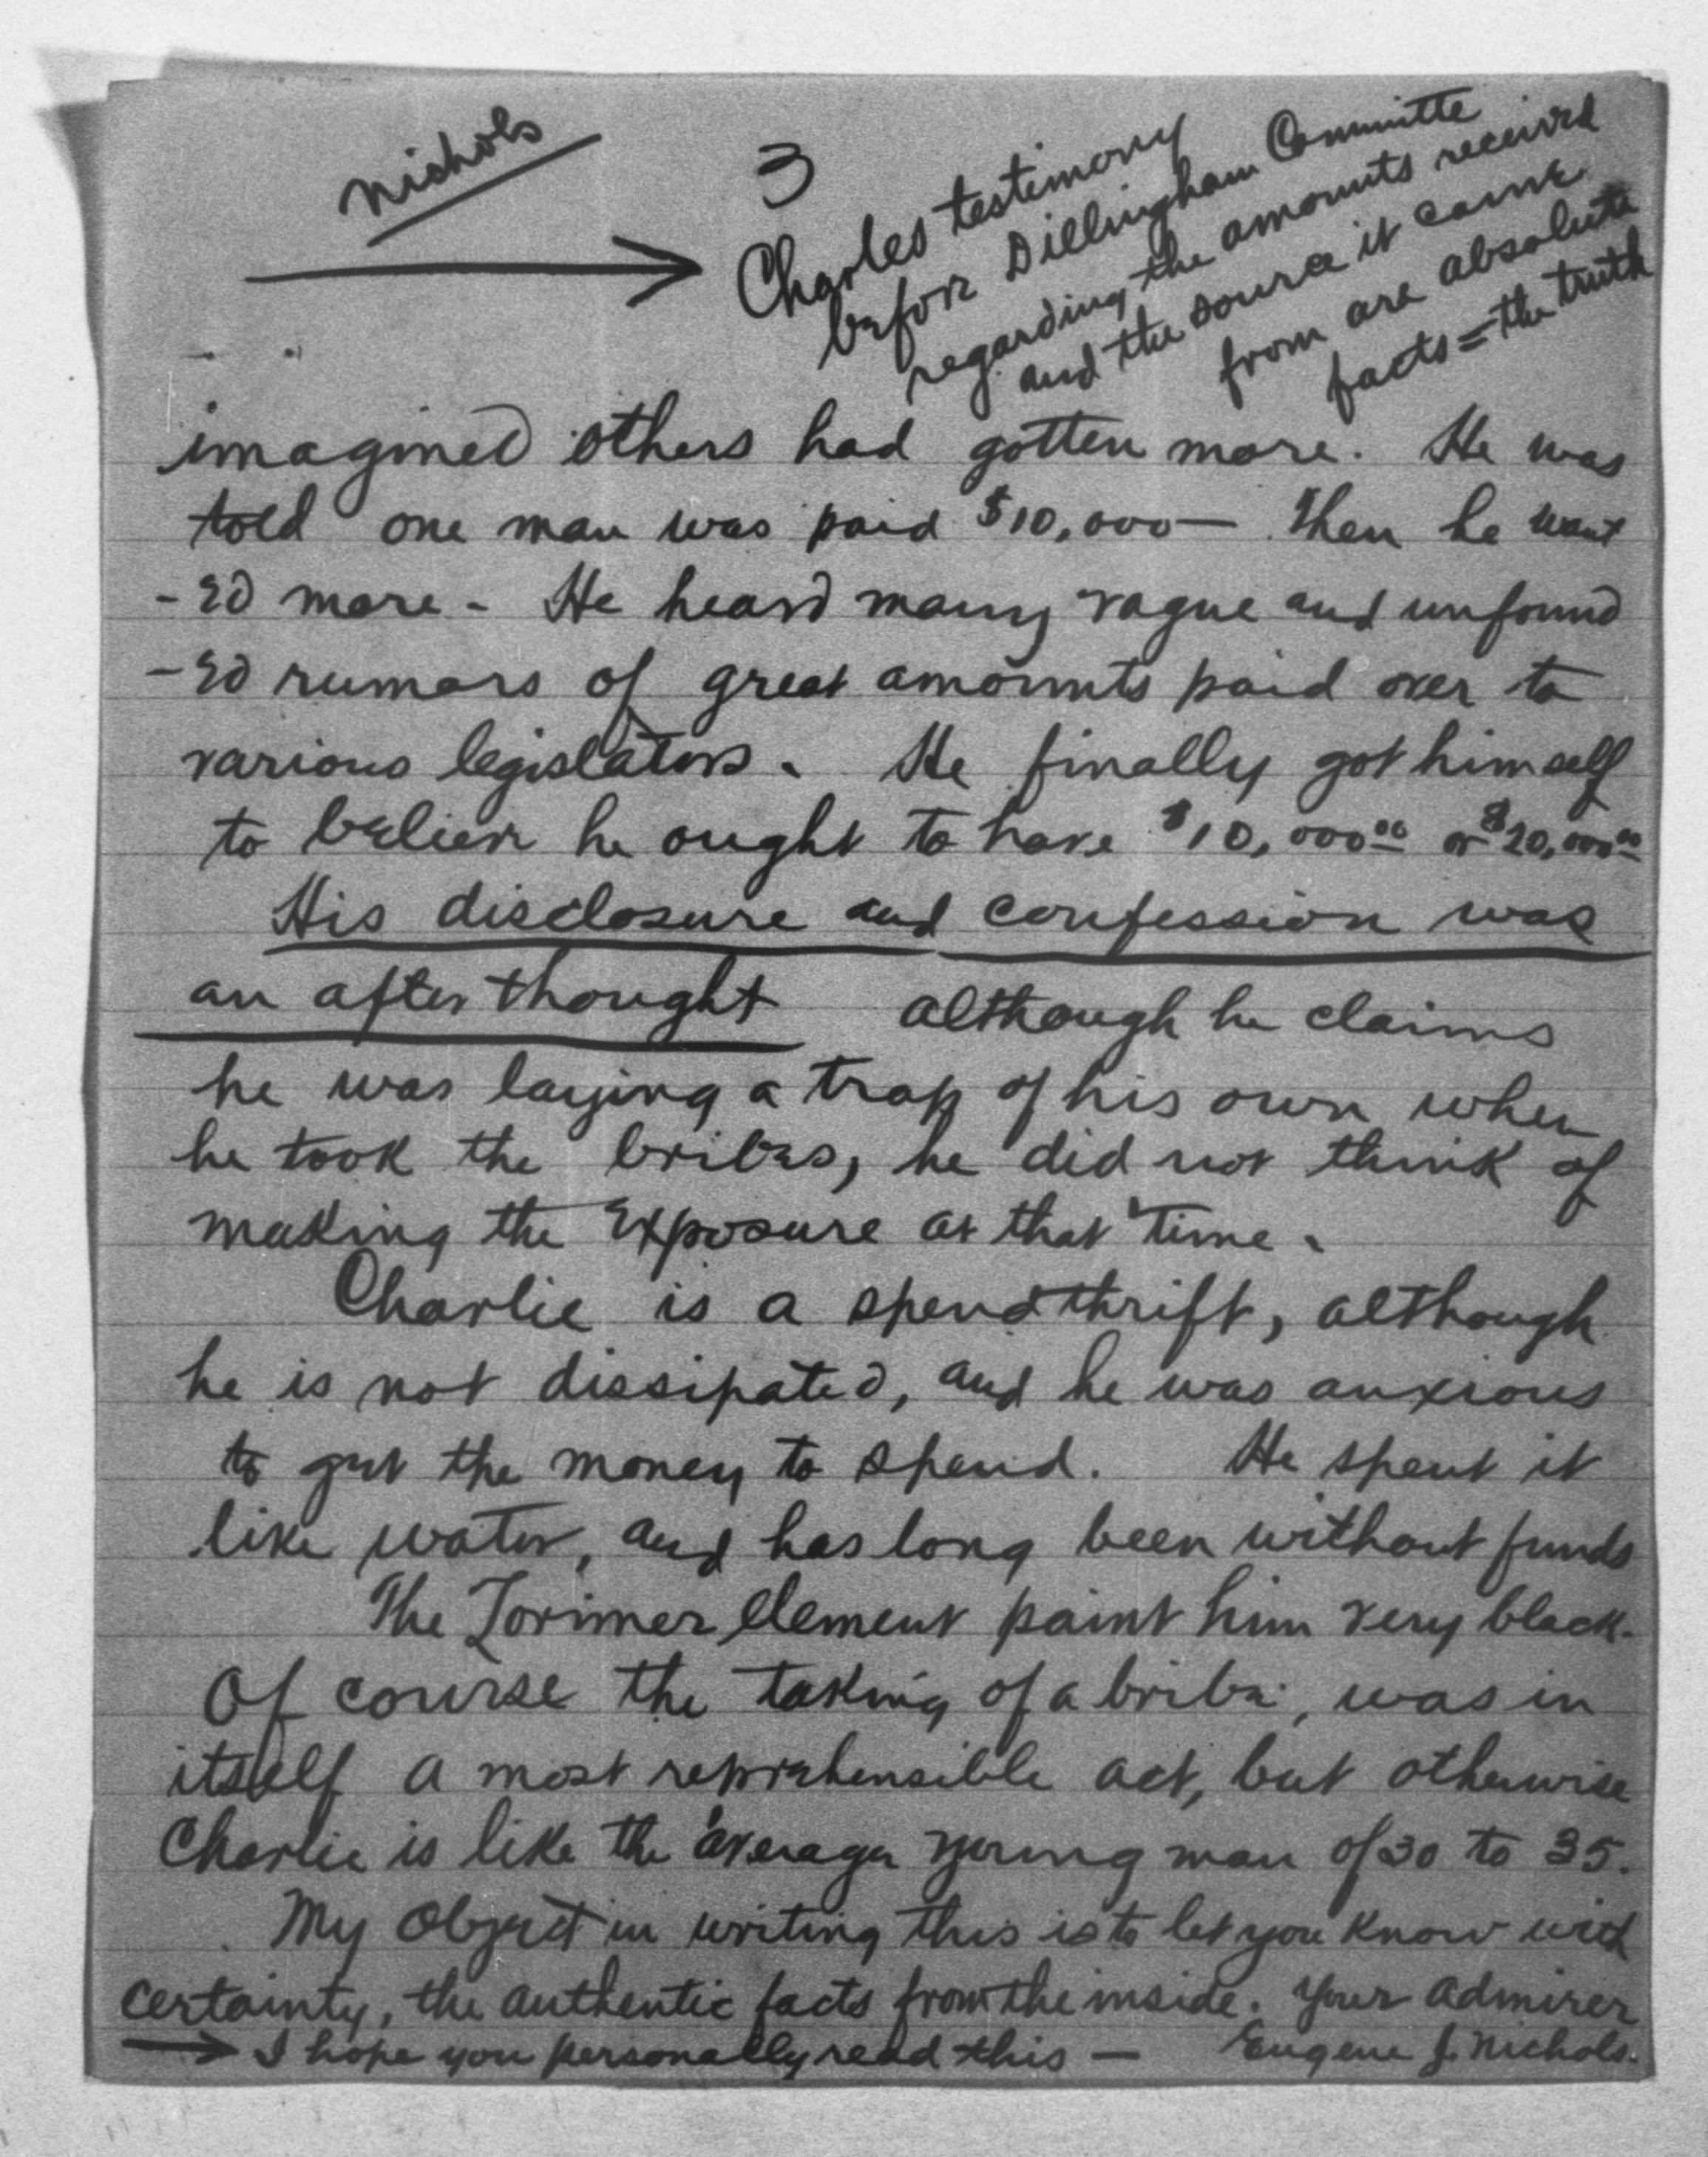 Nichols
3
Charles testimony
before Dillingham Committe
regarding the amounts received
and the source it came
from are absolute
facts = the truth
imagined others had gotten more. He was
told one man was paid $10,000 — Then he want
- ed more - He heard many vague and unfound
- ed rumors of great amounts paid over to
various legislators. He finally got himself
to believe he ought to have $10,000.00 or $20,000.00
His disclosure and confession was
an after thought although he claims
he was laying a trap of his own when
he took the bribes, he did not think of
making the exposure at that time.
Charlie is a spendthrift, although
he is not dissipated, and he was anxious
to get the money to spend. He spent it
like water, and has long been without funds
The Lorimer element paint him very black.
Of course the taking of a bribe, was in
itself a most reprehensible act, but otherwise
Charlie is like the average young man of 30 to 35.
My object in writing this is to let you know with
certainty, the authentic facts from the inside. Your admirer
→ I hope you personally read this — Eugene J. Nichols.